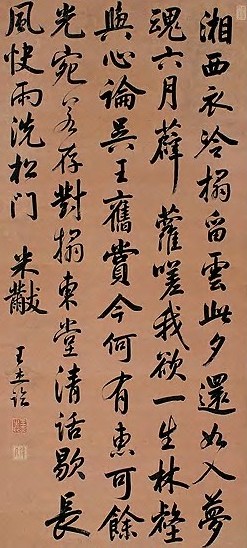 湘西衣冷搨留雲此夕還如入夢
魂六月薜蘿嗟我欲一生林壑
與心論吳王舊賞今何有惠可餘
光宛若存對搨東堂清話歇長
風快雨洗松门 米黻
王